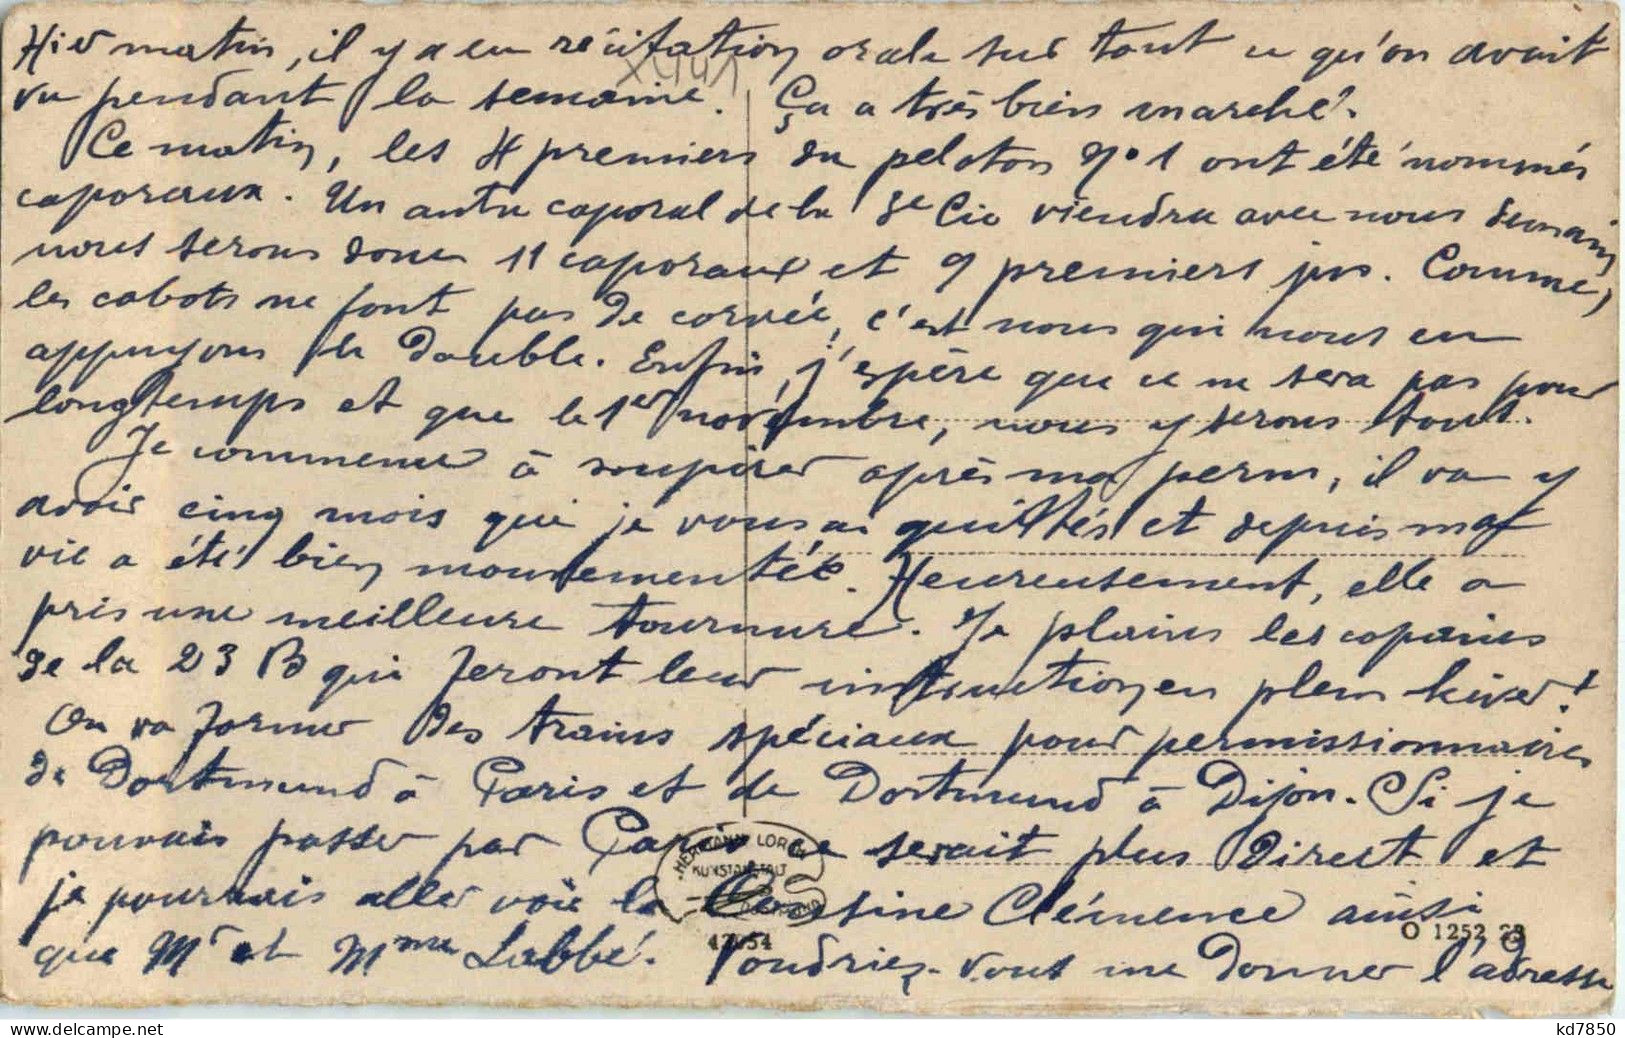 Hier matin, il y a eu récitation orale sur tout ce qu'on avait
vu pendant la semaine. Ça a très bien marché.
Ce matin, les 4 premiers du peloton N°1 ont été nommés
caporaux. Un autre caporal de la 8e Cie viendra avec nous demain
nous serons donc 11 caporaux et 9 premiers jus. Comme,
les cabots ne font pas de corvée, c'est nous qui nous en
appuyons le double. Enfin, j'espère que ce ne sera pas pour
longtemps et que le 1er novembre, nous y serons tous.
Je commence à soupirer après ma perm, il va y
avoir cinq mois que je vous ai quittés et depuis ma
vie a été bien mouvementée. Heureusement, elle a
pris une meilleure tournure. Je plains les copains
de la 23 B qui feront leur instruction en plein hiver!
On va former des trains spéciaux pour permissionnaires
de Dortmund à Paris et de Dortmund à Dijon. Si je
pouvais passer par Paris ce serait plus direct et
je pourrais aller voir la Cousine Clémence ainsi
que Mr et Mme Labbé. Voudriez-vous me donner l'adresse
HERMANN LORCH
KUNSTANSTALT
DORTMUND
O 1252 23
kd7850